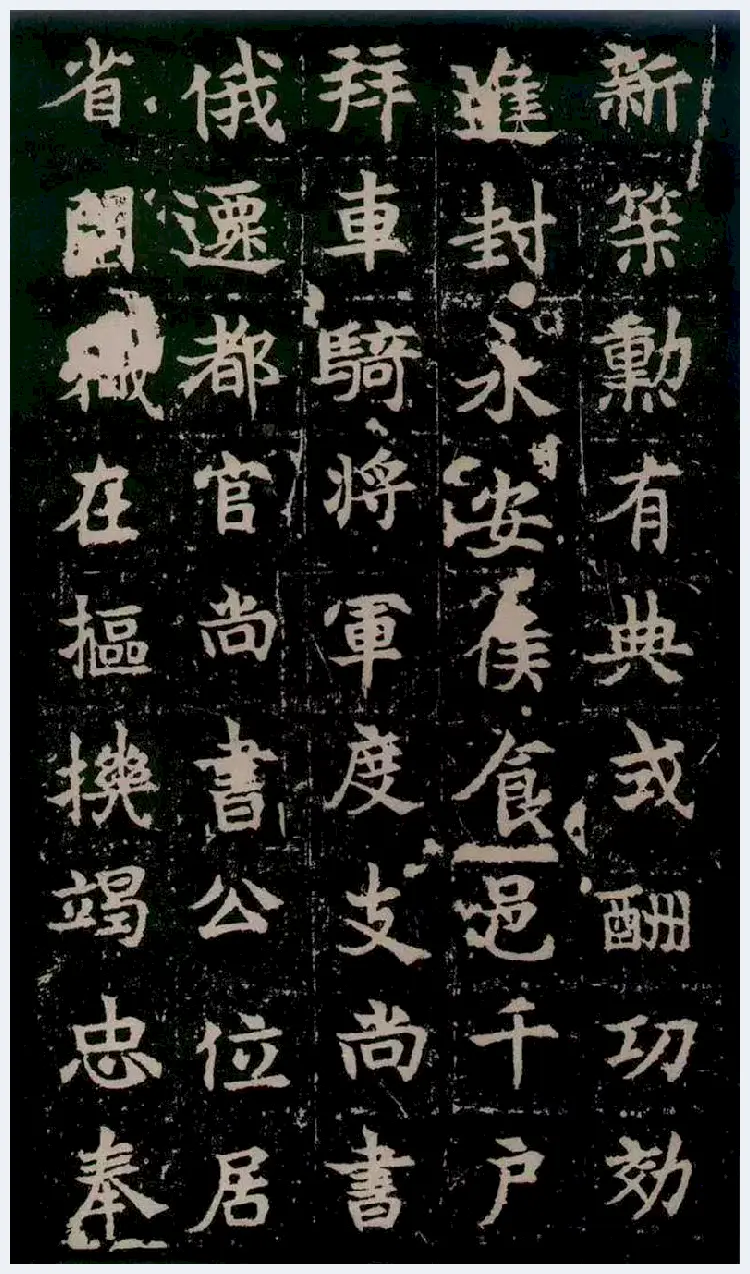 新策勳有典式酬功効
進封永安侯食邑千户
拜車騎將軍度支尚書
俄遷都官尚書公位居
省在樞機竭忠奉